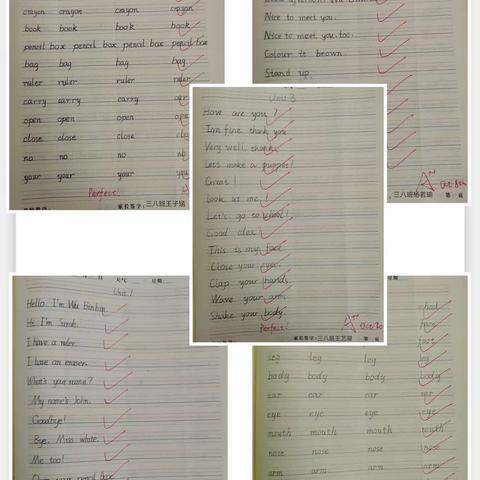 crayon crayon crayon crayon
book book book book
pencil box pencil box pencil box pencil box
bag bag bag bag
ruler ruler ruler ruler
carry carry carry
open open open
close close close
no no no no
your your your your
Perfect!
家长签字: 三八班王子涵
Nice to meet you.
Nice to meet you, too.
Colour it brown.
Stand up.
A++ Oct 8th
三八班杨若瑜 第 页
Unit 3
How are you?
I'm fine, thank you.
Very well, thanks.
Let's make a puppet!
Great!
Look at me!
Let's go to school!
Good idea.
This is my face.
Close your eyes.
Clap your hands.
Wave your arm.
Shake your body.
Perfect!
家长签字: 三八班王艺涵 第 页
天气 星期
Unit 1
Hello I'm Wu Binbin.
Hi I'm Sarah.
I have a ruler.
I have an eraser.
What's your name?
My name's John.
Goodbye!
Bye, Miss white.
Me too!
Open your pencil box.
星期
face
leg leg leg leg
body body body body
ear ear ear ear
eye eye eye eye
mouth mouth mouth mouth
nose nose nose nose
arm arm arm arm